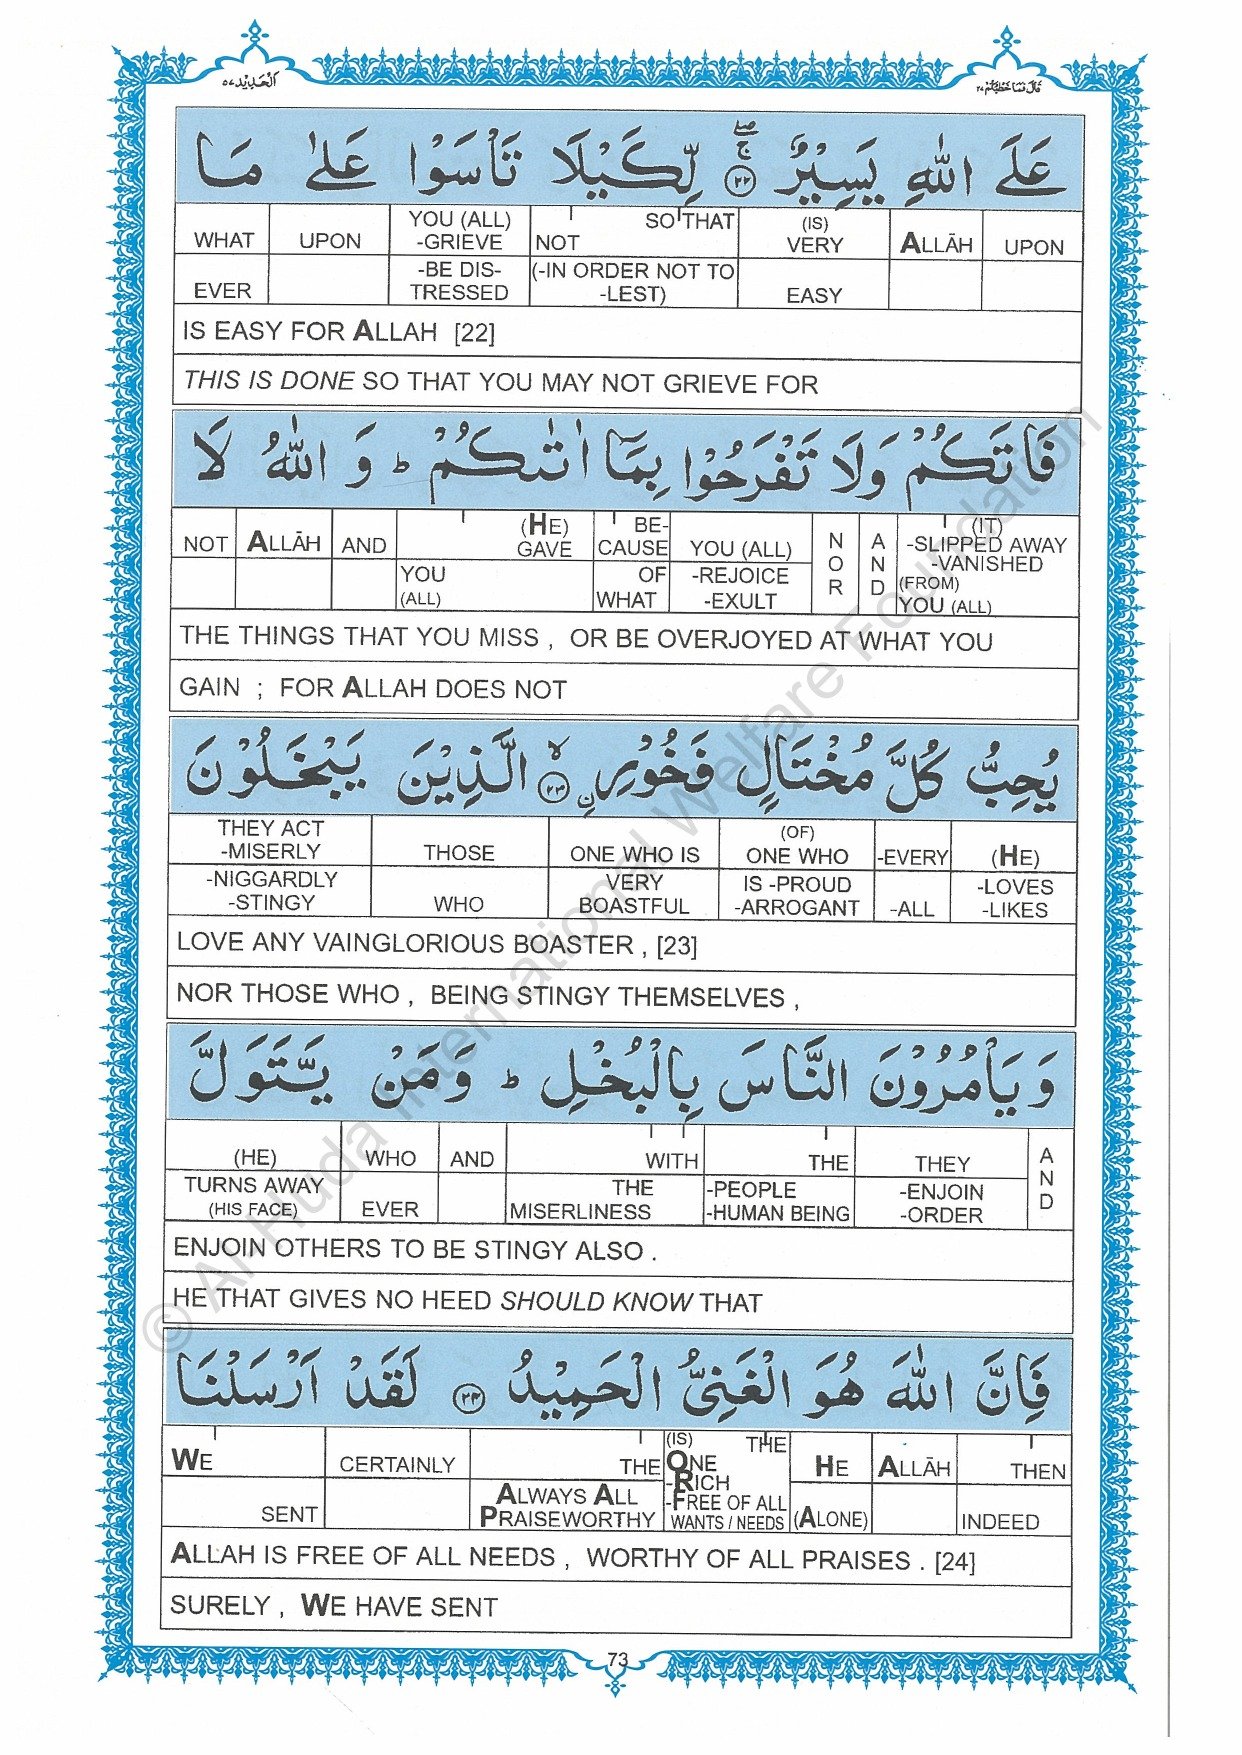 اَلْحَدِيْد ٥٧
قَالَ فَمَا خَطْبُكُمْ ٢٧
عَلَى اللّٰهِ يَسِيْرٌ ﴿٢٢﴾ لِّكَيْلَا تَاْسَوْا عَلٰى مَا
WHAT UPON YOU (ALL) -GRIEVE NOT SO THAT (IS) VERY ALLĀH UPON
EVER -BE DIS- TRESSED (-IN ORDER NOT TO -LEST) EASY
IS EASY FOR ALLAH [22]
THIS IS DONE SO THAT YOU MAY NOT GRIEVE FOR
فَاتَكُمْ وَلَا تَفْرَحُوْا بِمَآ اٰتٰىكُمْ ؕ وَ اللّٰهُ لَا
NOT ALLĀH AND (HE) GAVE BE- CAUSE YOU (ALL) NOR AND (IT) -SLIPPED AWAY -VANISHED
YOU (ALL) OF WHAT -REJOICE -EXULT (FROM) YOU (ALL)
THE THINGS THAT YOU MISS , OR BE OVERJOYED AT WHAT YOU
GAIN ; FOR ALLAH DOES NOT
يُحِبُّ كُلَّ مُخْتَالٍ فَخُوْرِ ﴿٢٣﴾ الَّذِيْنَ يَبْخَلُوْنَ
THEY ACT -MISERLY THOSE ONE WHO IS (OF) ONE WHO -EVERY (HE)
-NIGGARDLY -STINGY WHO VERY BOASTFUL IS -PROUD -ARROGANT -ALL -LOVES -LIKES
LOVE ANY VAINGLORIOUS BOASTER , [23]
NOR THOSE WHO , BEING STINGY THEMSELVES ,
وَيَاْمُرُوْنَ النَّاسَ بِالْبُخْلِ ؕ وَمَنْ يَّتَوَلَّ
(HE) WHO AND WITH THE THEY AND
TURNS AWAY (HIS FACE) EVER THE MISERLINESS -PEOPLE -HUMAN BEING -ENJOIN -ORDER
ENJOIN OTHERS TO BE STINGY ALSO .
HE THAT GIVES NO HEED SHOULD KNOW THAT
فَاِنَّ اللّٰهَ هُوَ الْغَنِيُّ الْحَمِيْدُ ﴿٢٤﴾ لَقَدْ اَرْسَلْنَا
WE CERTAINLY THE (IS) THE ONE HE ALLĀH THEN
SENT ALWAYS ALL PRAISEWORTHY -RICH -FREE OF ALL WANTS / NEEDS (ALONE) INDEED
ALLAH IS FREE OF ALL NEEDS , WORTHY OF ALL PRAISES . [24]
SURELY , WE HAVE SENT
73
© Al-Huda International Welfare Foundation